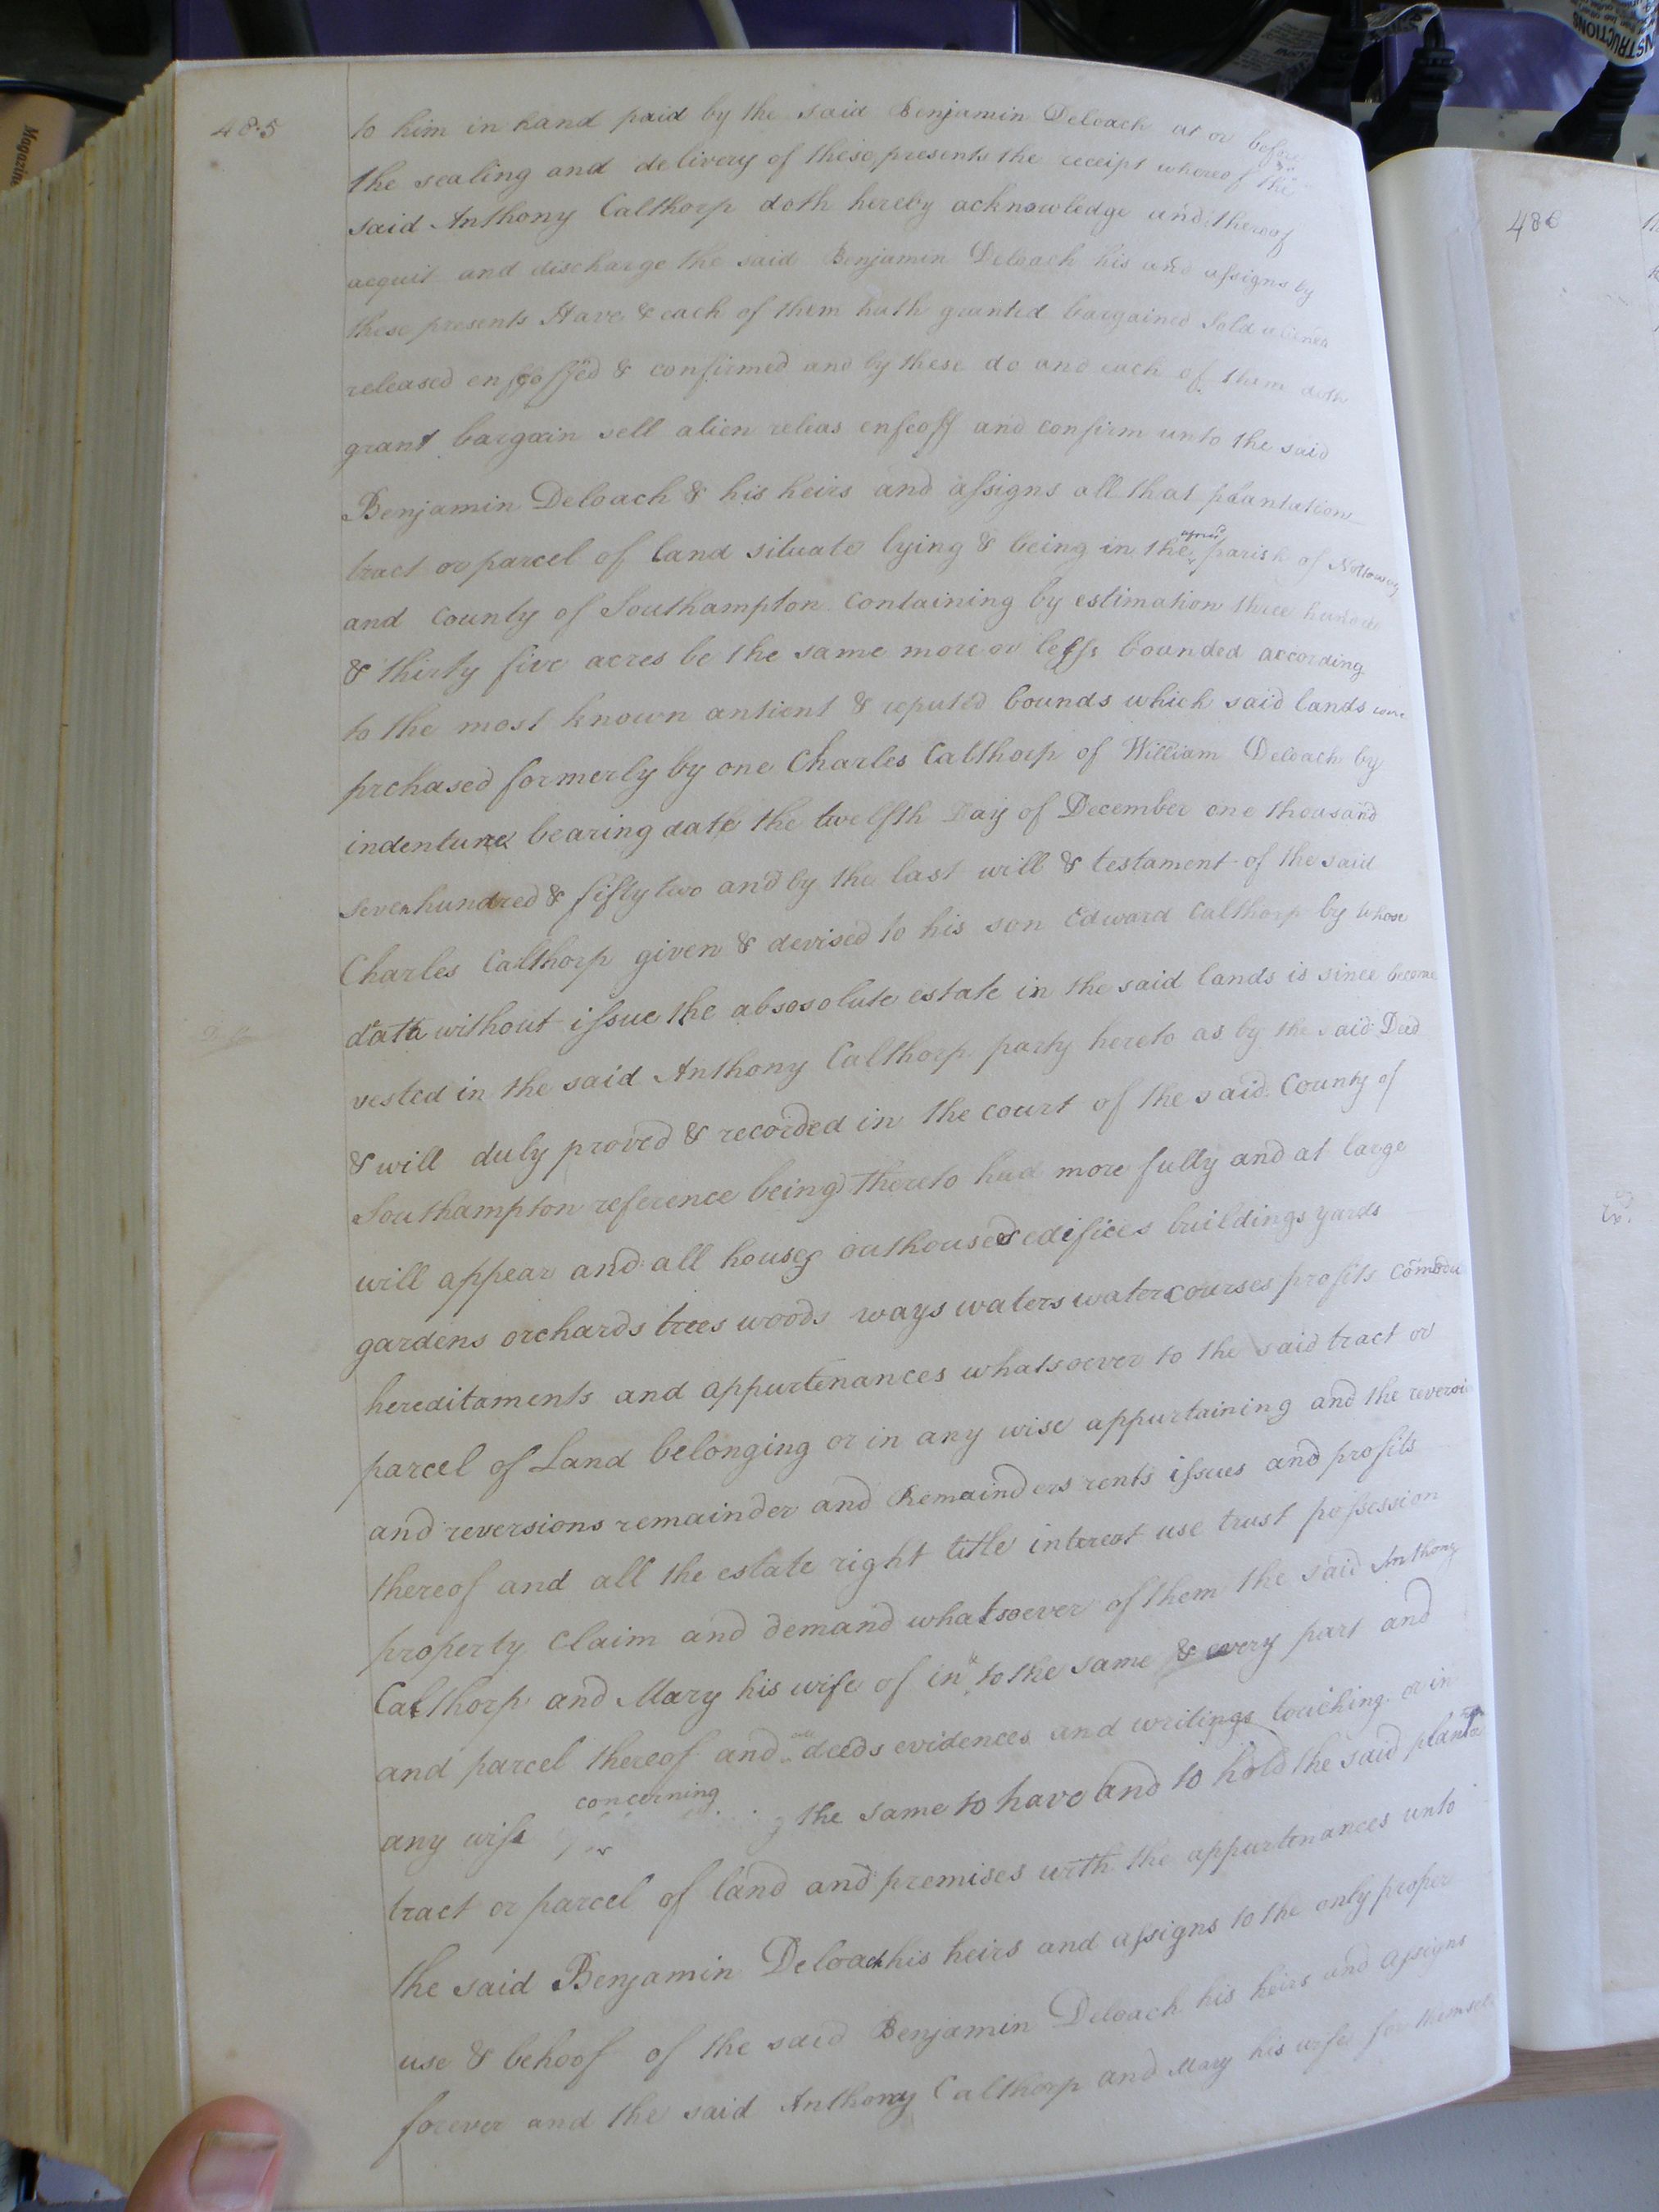 485
to him in hand paid by the said Benjamin Deloach at or before
the sealing and delivery of these presents the receipt whereof the
said Anthony Calthorp doth hereby acknowledge and thereof
acquit and discharge the said Benjamin Deloach his and assigns by
these presents Have & each of them hath granted bargained Sold aliened
released enfeoffed & confirmed and by these do and each of them doth
grant bargain sell alien releas enfeoff and confirm unto the said
Benjamin Deloach & his heirs and assigns all that plantation
tract or parcel of land situate lying & being in the parish of Nottoway
and County of Southampton containing by estimation three hundred
& thirty five acres be the same more or less bounded according
to the most known antient & reputed bounds which said lands were
prchased formerly by one Charles Calthorp of William Deloach by
indenture bearing date the twelfth Day of December one thousand
seven hundred & fifty two and by the last will & testament of the said
Charles Calthorp given & devised to his son Edward Calthorp by whose
death without issue the absosolute estate in the said lands is since become
vested in the said Anthony Calthorp party hereto as by the said Deed
& will duly proved & recorded in the court of the said County of
Southampton reference being thereto had more fully and at large
will appear and all houses outhouses edifices buildings yards
gardens orchards trees woods ways waters watercourses profits comodu
hereditaments and appurtenances whatsoever to the said tract or
parcel of Land belonging or in any wise appurtaining and the reversion
and reversions remainder and Remainders rents issues and profits
thereof and all the estate right title interest use trust possession
property Claim and demand whatsoever of them the said Anthony
Calthorp and Mary his wife of in & to the same & every part and
and parcel thereof and all deeds evidences and writings touching or in
any wise concerning the same to have and to hold the said planta
tract or parcel of land and premises with the appurtenances unto
the said Benjamin Deloach his heirs and assigns to the only proper
use & behoof of the said Benjamin Deloach his heirs and assigns
forever and the said Anthony Calthorp and Mary his wife for themselv
486